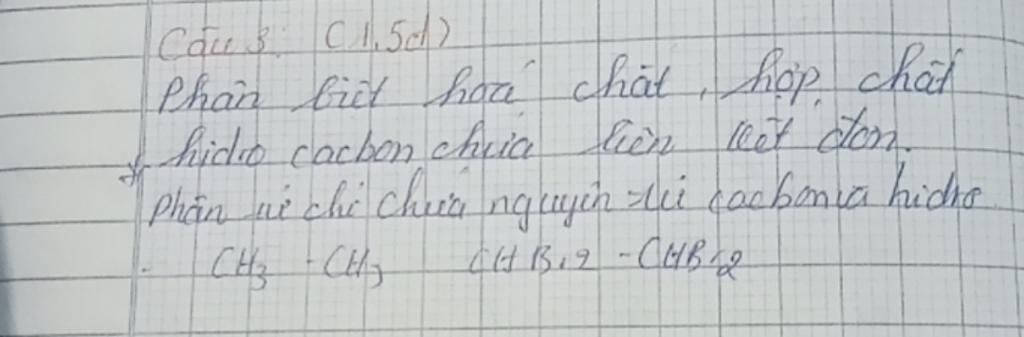 Câu 3: (1,5đ)
Phân biệt hoá chất, hợp chất
* hidro cacbon chứa liên kết đơn.
Phân tử chỉ chứa nguyên tử cacbon và hidro
- CH3 - CH3 CHBr2 - CHBr2